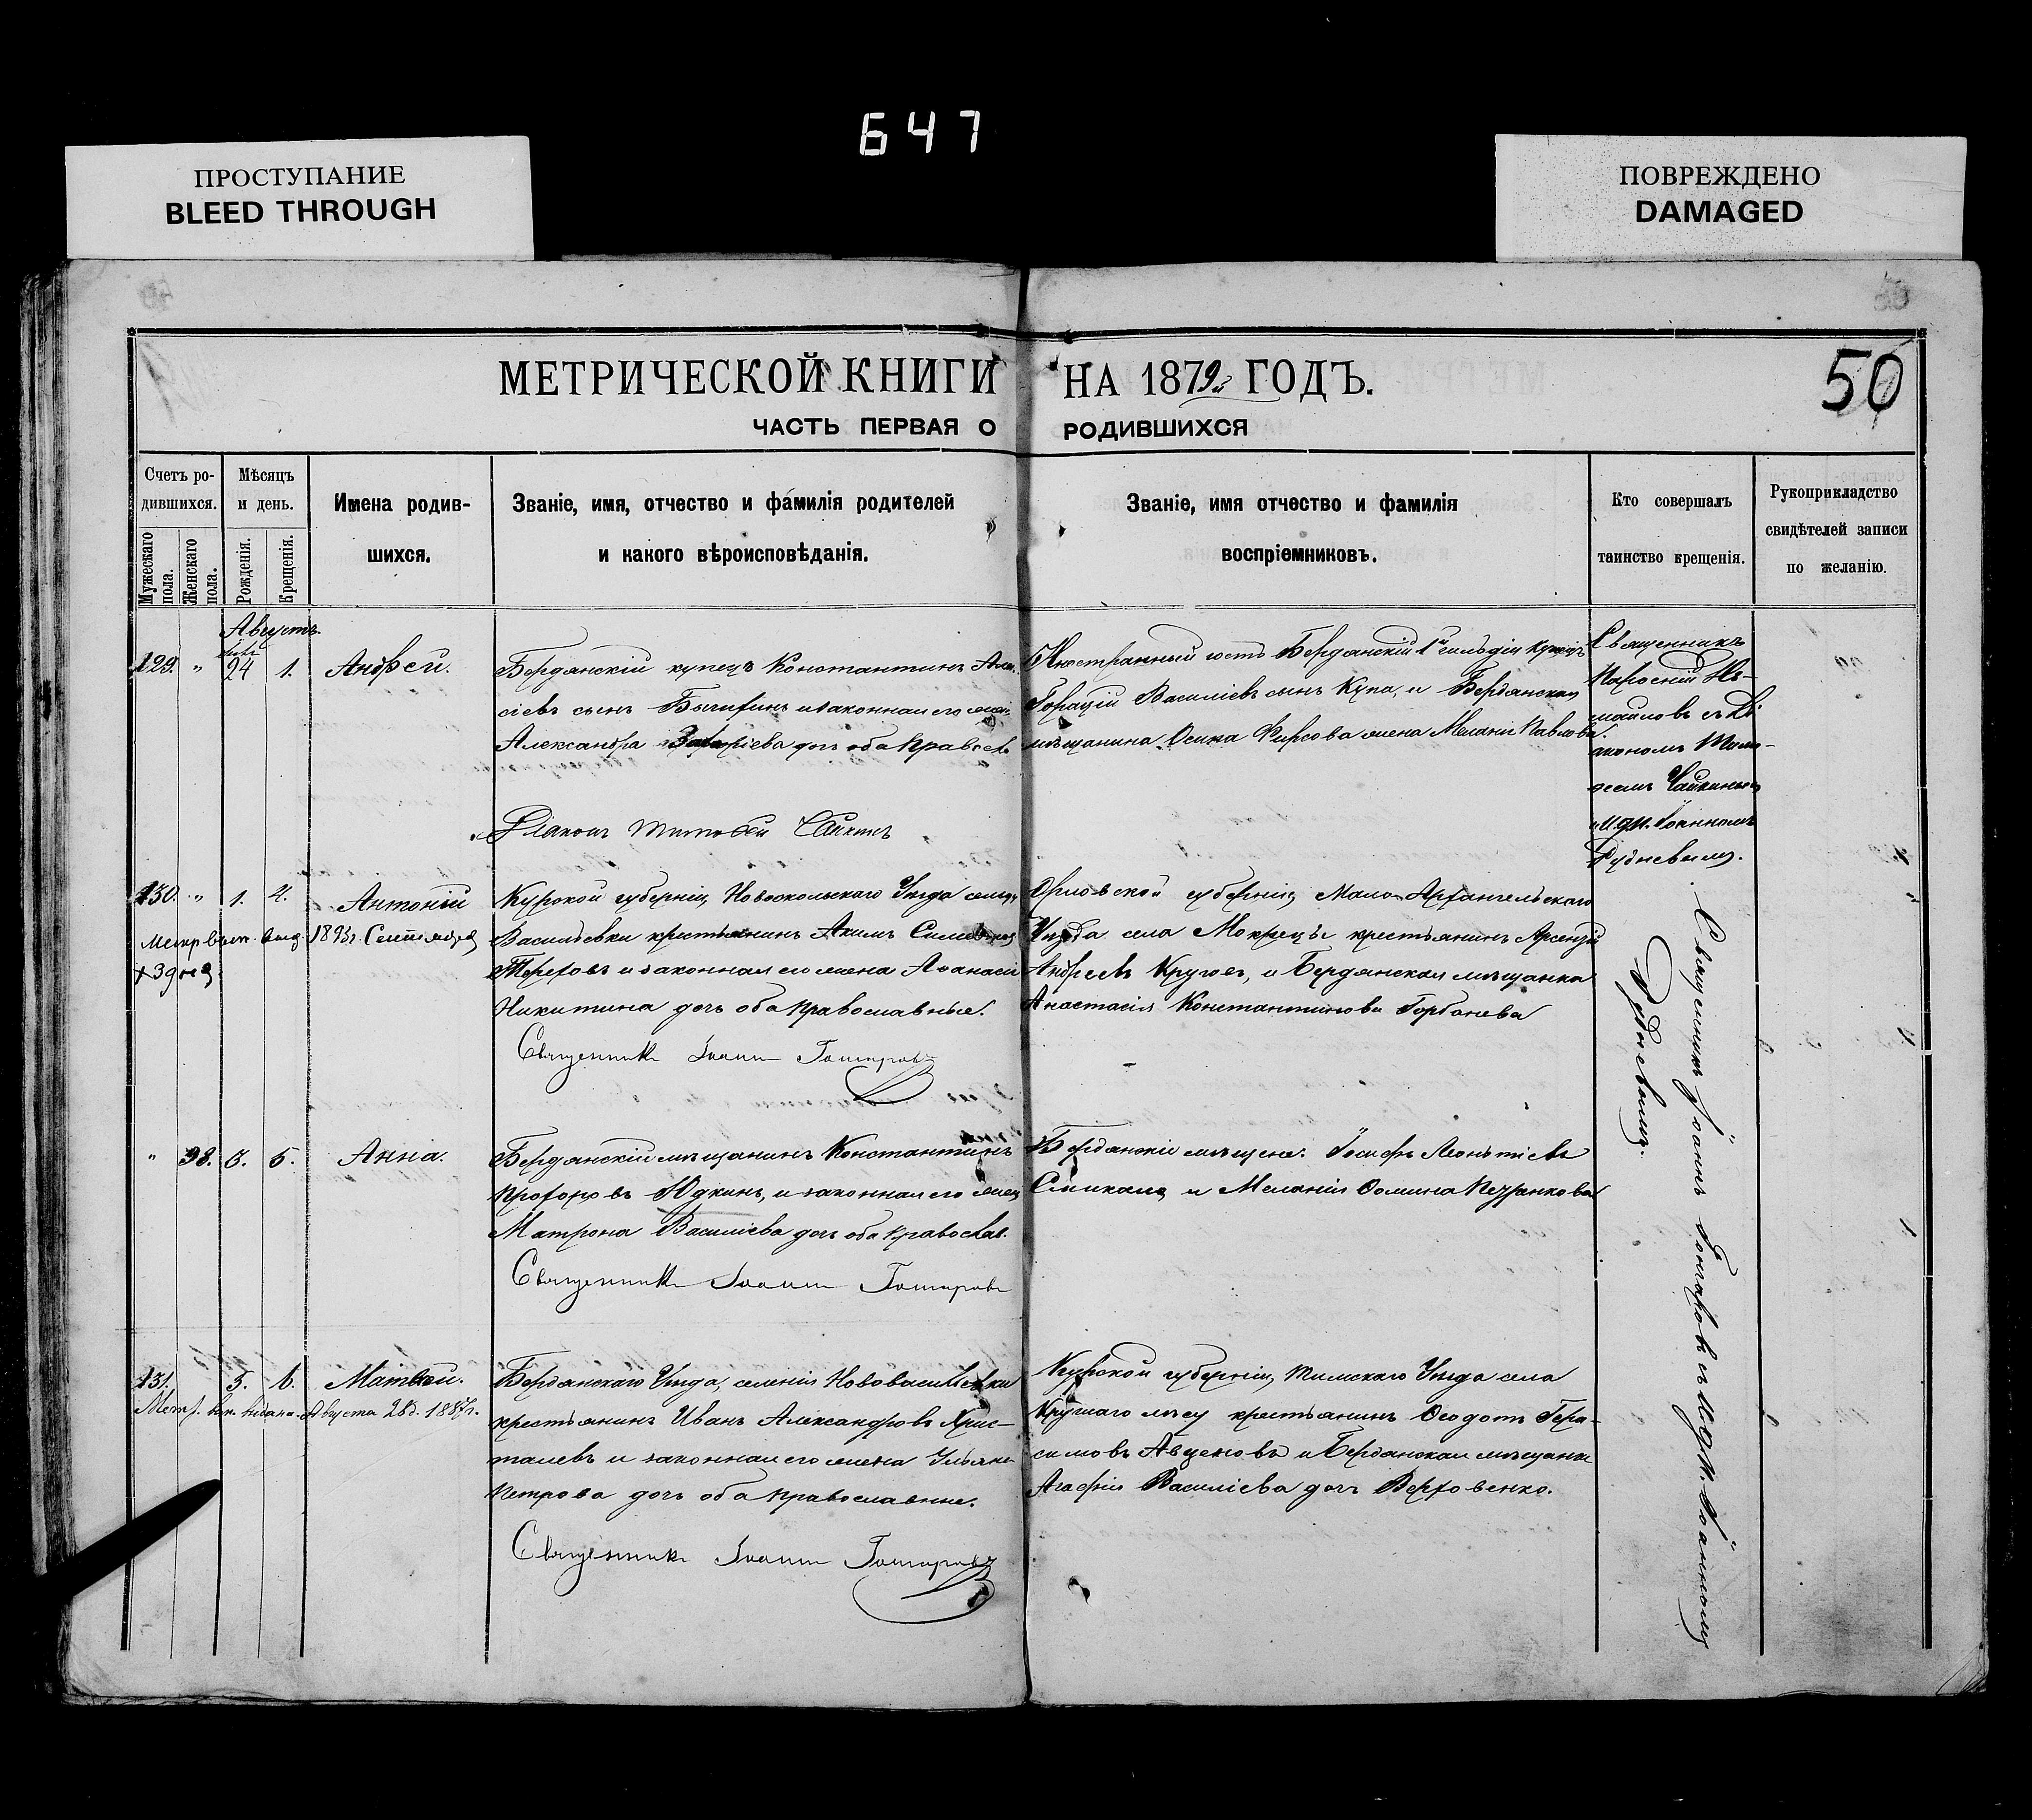 647
ПРОСТУПАНИЕ
BLEED THROUGH
ПОВРЕЖДЕНО
DAMAGED
МЕТРИЧЕСКОЙ КНИГИ НА 1879й ГОДЪ.
50
ЧАСТЬ ПЕРВАЯ О РОДИВШИХСЯ
Счетъ ро-
дившихся.
Мужескаго пола.
Женскаго пола.
Мѣсяцъ
и день.
Рожденія.
Крещенія.
Имена родив-
шихся.
Званіе, имя, отчество и фамилія родителей
и какого вѣроисповѣданія.
Званіе, имя отчество и фамилія
воспріемниковъ.
Кто совершалъ
таинство крещенія.
Рукоприкладство
свидѣтелей записи
по желанію.
Августъ
129. " 24 1. Андрей.
Бердянскій купецъ Константинъ
сіевъ сынъ и законная его
Александра дочь оба Правосл
Діаконъ
Иностранный гость Бердянскій 1й гильдіи купецъ
Горацій Василіевъ сынъ Купа, и Бердянскаго
мѣщанина Осипа Фирсова жена Меланія Павлова.
Священникъ
съ Ді
акономъ
Чайкинымъ
и Іоанномъ
Рудневымъ.
130. " 1. 4. Антоній
1893г. Сентября
Курской губерніи, Новооскольскаго Уѣзда
Васильевки крестьянинъ Акимъ
Тереховъ и законная его жена Афанасія
Никитина дочь оба православные.
Священникъ Іоаннъ Гончаровъ
Орловской губерніи, Мало-Архангельскаго
Уѣзда села Мокрецъ крестьянинъ Арсеній
Андреевъ Круговъ, и Бердянская мѣщанка
Анастасія Константинова Горбанева
" 98. 3. 5. Анна.
Бердянскій мѣщанинъ Константинъ
Прохоровъ Юдкинъ, и законная его жена
Матрона Василіева дочь оба православ.
Священникъ Іоаннъ Гончаровъ
Бердянскіе мѣщане: Іосифъ Леонтіевъ
и Меланія Ѳомина
Священникъ Іоаннъ Гончаровъ съ Іоанномъ
Рудневымъ.
131. 5. 6. Матвѣй.
Метр. вып. видана Августа 28д. 1887г.
Бердянскаго Уѣзда, селенія Нововасильевки
крестьянинъ Иванъ Александровъ Хрис-
талевъ и законная его жена Ульяна
Петрова дочь оба православные.
Священникъ Іоаннъ Гончаровъ
Курской губерніи, Тимскаго Уѣзда села
крестьянинъ Ѳеодотъ Гера-
симовъ и Бердянская мѣщанка
Агафія Василіева дочь Верховенко.